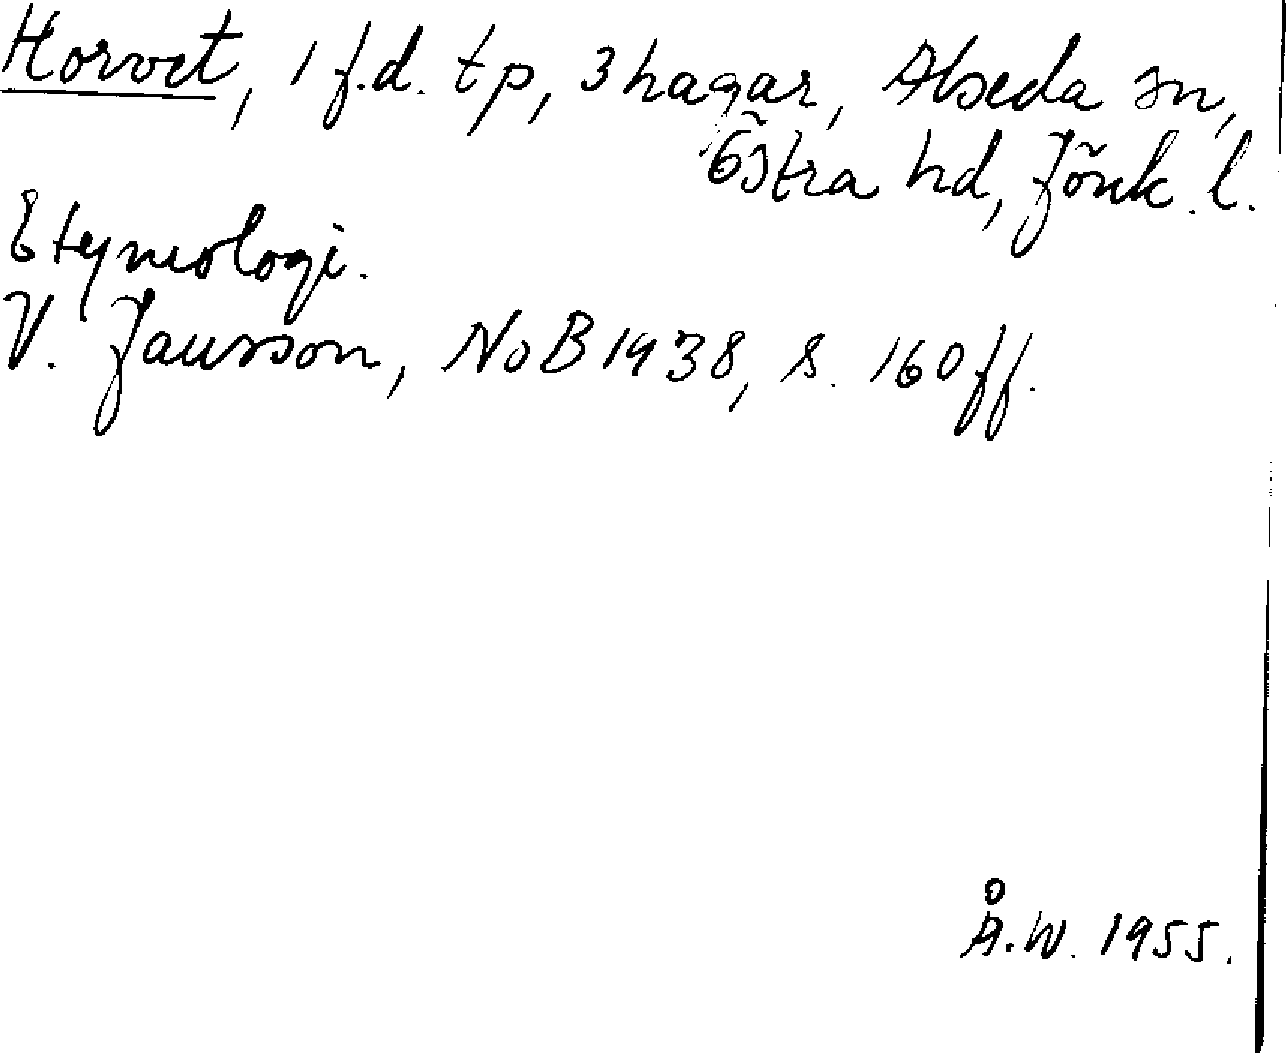 Horvet, 1 f.d. tp, 3 hagar, Alseda sn,
Östra hd, Jönk. l.
Etymologi.
V. Jansson, NoB 1938, s. 160 ff.
Å.W. 1955.